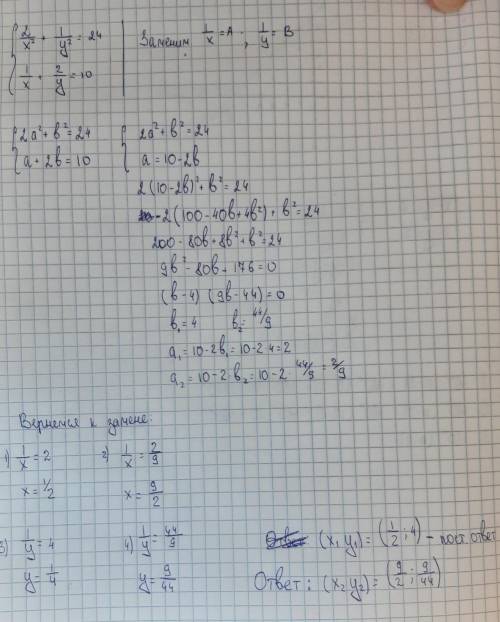 { 2/x² + 1/y² = 24
{ 1/x + 2/y = 10
Заменим 1/x = A ; 1/y = B
{ 2a² + b² = 24
{ a + 2b = 10
{ 2a² + b² = 24
{ a = 10 - 2b
2(10 - 2b)² + b² = 24
2(100 - 40b + 4b²) + b² = 24
200 - 80b + 8b² + b² = 24
9b² - 80b + 176 = 0
(b - 4) (9b - 44) = 0
b₁ = 4 b₂ = 44/9
a₁ = 10 - 2b₁ = 10 - 2 · 4 = 2
a₂ = 10 - 2 · b₂ = 10 - 2 44/9 = 2/9
Вернемся к замене:
1) 1/x = 2
x = 1/2
2) 1/x = 2/9
x = 9/2
3) 1/y = 4
y = 1/4
4) 1/y = 44/9
y = 9/44
(x₁ y₁) = (1/2 ; 4) - пост. ответ
Ответ: (x₂ y₂) = (9/2 ; 9/44)